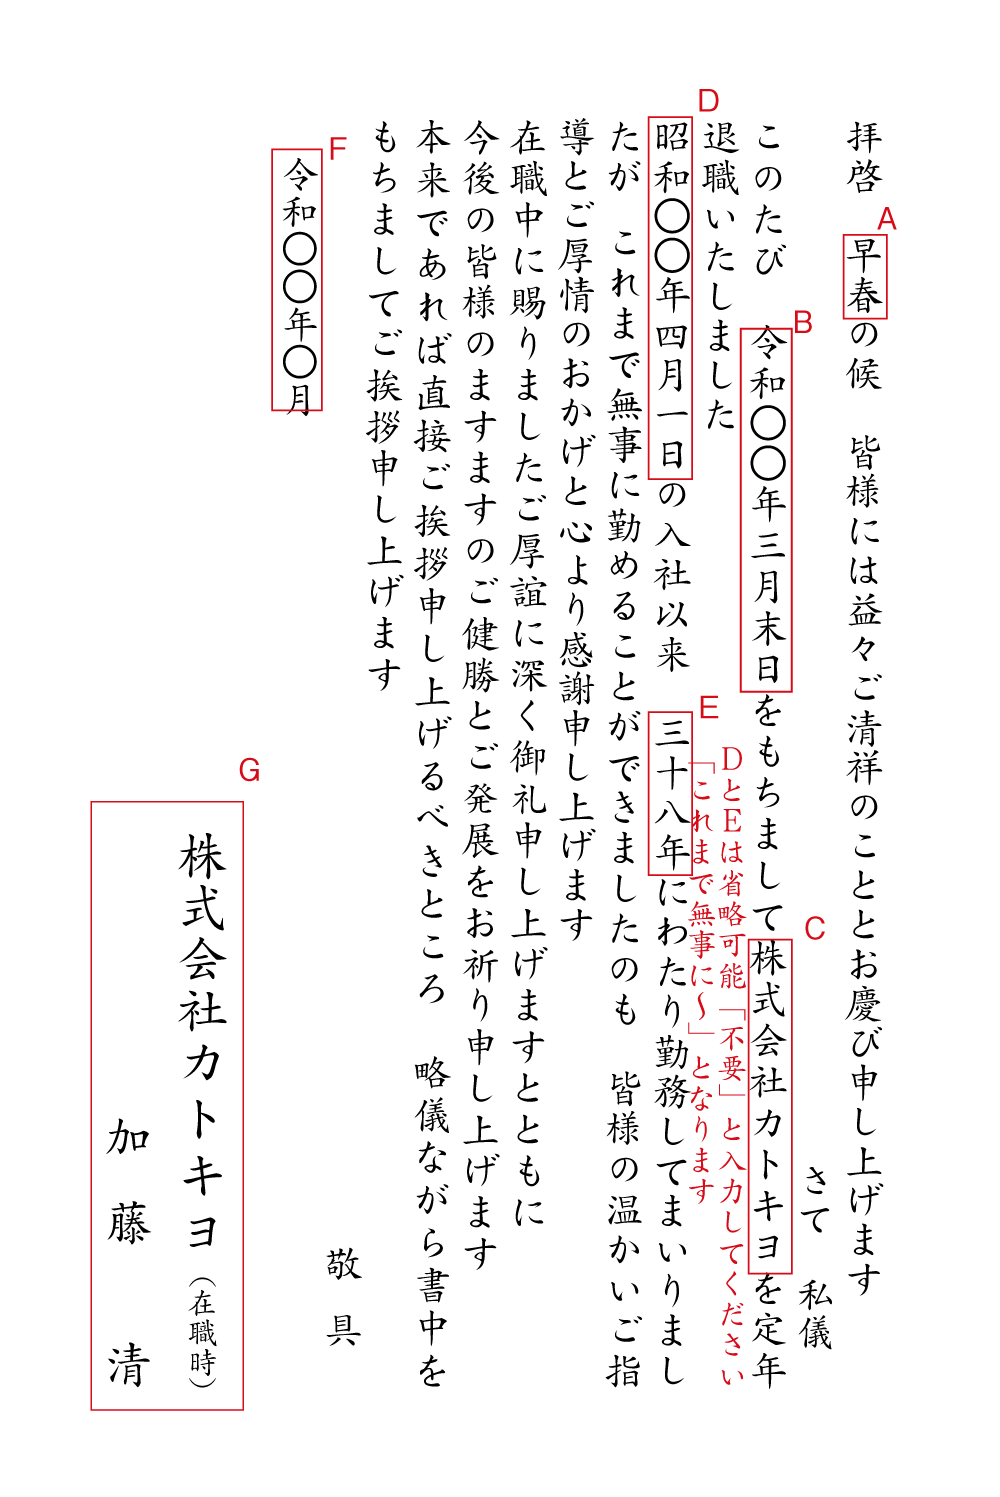 拝啓　早春の候　皆様には益々ご清祥のこととお慶び申し上げます
A
さて　私儀
このたび　令和〇〇年三月末日をもちまして株式会社カトキヨを定年
B
C
退職いたしました
D
昭和〇〇年四月一日の入社以来　三十八年にわたり勤務してまいりまし
E
DとEは省略可能「不要」と入力してください
「これまで無事に〜」となります
たが　これまで無事に勤めることができましたのも　皆様の温かいご指
導とご厚情のおかげと心より感謝申し上げます
在職中に賜りましたご厚誼に深く御礼申し上げますとともに
今後の皆様のますますのご健勝とご発展をお祈り申し上げます
本来であれば直接ご挨拶申し上げるべきところ　略儀ながら書中を
もちましてご挨拶申し上げます
敬具
F
令和〇〇年〇月
G
株式会社カトキヨ（在職時）
加藤　清